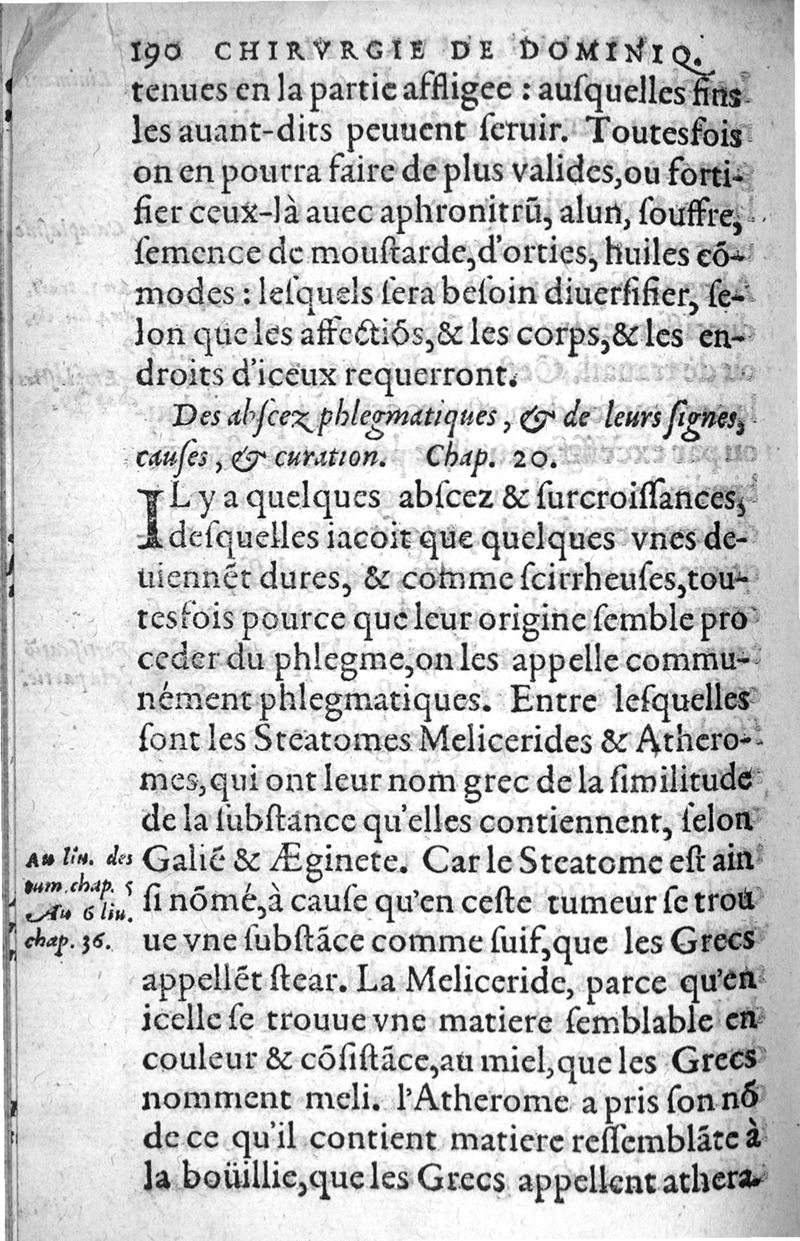 190 CHIRVRGIE DE DOMINIQ.
tenues en la partie affligee : auſquelles fins
les auant-dits peuuent ſeruir. Toutesfois
on en pourra faire de plus valides,ou forti-
fier ceux-là auec aphronitrũ, alun, ſouffre,
ſemence de mouſtarde,d'orties, huiles cõ-
modes : leſquels ſera beſoin diuerſifier, ſe-
lon que les affectiõs,& les corps,& les en-
droits d'iceux requerront.
Des abſcez phlegmatiques, & de leurs ſignes,
cauſes, & curation. Chap. 20.
IL y a quelques abſcez & ſurcroiſſances,
deſquelles iacoit que quelques vnes de-
uiennẽt dures, & comme ſcirrheuſes,tou-
tesfois pource que leur origine ſemble pro
ceder du phlegme,on les appelle commu-
nément phlegmatiques. Entre leſquelles
ſont les Steatomes Melicerides & Athero-
mes,qui ont leur nom grec de la ſimilitude
de la ſubſtance qu'elles contiennent, ſelon
Galiẽ & Æginete. Car le Steatome eſt ain
ſi nõmé,à cauſe qu'en ceſte tumeur ſe trou
ue vne ſubſtãce comme ſuif,que les Grecs
appellẽt ſtear. La Meliceride, parce qu'en
icelle ſe trouue vne matiere ſemblable en
couleur & cõſiſtãce,au miel,que les Grecs
nomment meli. l'Atherome a pris ſon nõ
de ce qu'il contient matiere reſſemblãte à
la boüillie,que les Grecs appellent athera.
Au liu. des
tum. chap. 5
Au 6 liu.
chap. 36.